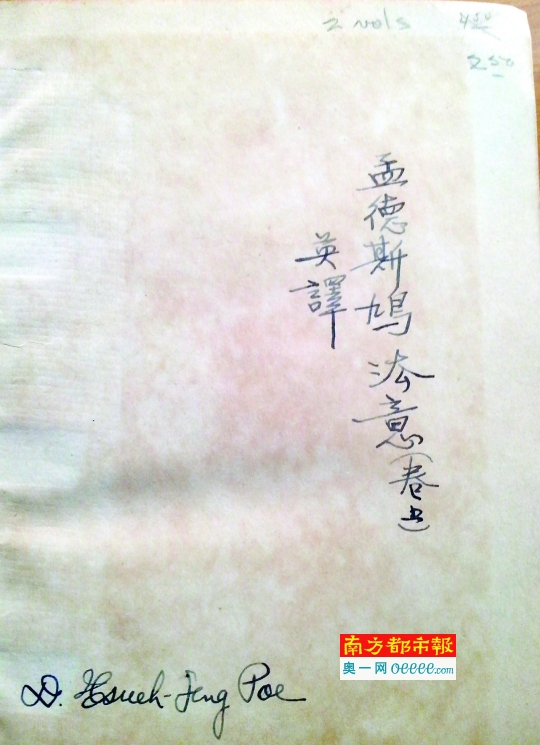 2 vols
2 50
孟德斯鳩法意(卷上)
英譯
南方都市報
奥一网 oeeee.com
D. Hsueh-Feng Poe